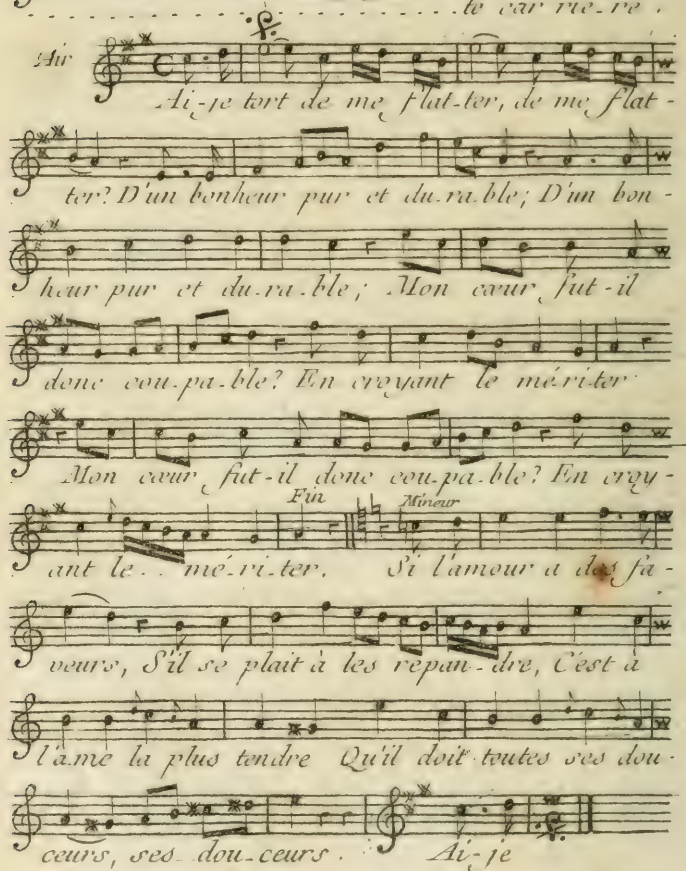 te car rie_re.
Air
Ai-je tort de me flat-ter, de me flat-
ter? D'un bonheur pur et du-ra-ble; D'un bon-
heur pur et du-ra-ble; Mon cœur fut-il
donc cou-pa-ble? En croyant le mé-ri-ter
Mon cœur fut-il donc cou-pa-ble? En croy-
Fin Mineur
ant le mé-ri-ter. Si l'amour a des fa-
veurs, S'il se plait à les repan-dre, C'est à
l'ame la plus tendre Qu'il doit toutes ses dou-
ceurs, ses dou-ceurs. Ai-je